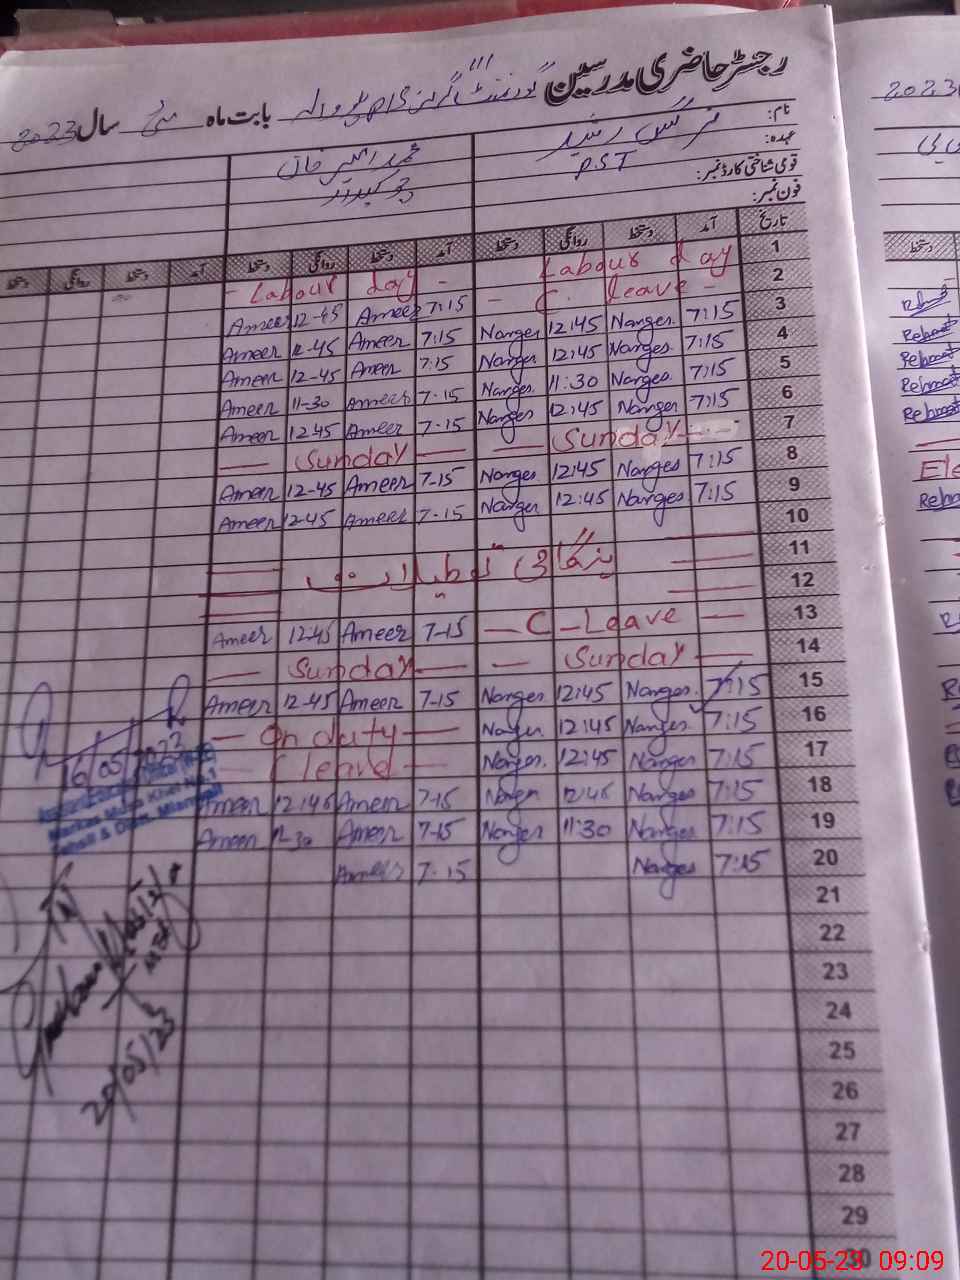 رجسٹر حاضری مدرسین گورنمنٹ گرلز بابت ماہ مئی سال 2023
2023
نام: نرگس رشید
محمد امیر خان
عہدہ: PST
چوکیدار
قومی شناختی کارڈ نمبر:
فون نمبر:
تاریخ آمد دستخط روانگی دستخط آمد دستخط روانگی دستخط آمد دستخط روانگی دستخط
دستخط
1 Labour day - Labour day -
2 - C. leave - Ameer 12-45 Ameer 7:15
3 7:15 Narges 12:45 Narges Ameer 12-45 Ameer 7:15
4 7:15 Narges 12:45 Narges Ameer 12-45 Ameer 7:15
5 7:15 Narges 11:30 Narges Ameer 11-30 Ameer 7-15
6 7:15 Narges 12:45 Narges Ameer 12-45 Ameer 7-15
7 — Sunday — — Sunday —
8 7:15 Narges 12:45 Narges Ameer 12-45 Ameer 7-15
9 7:15 Narges 12:45 Narges Ameer 12-45 Ameer 7-15
10
11 ہنگامی تعطیلات
12
13 — C - Leave — Ameer 12:45 Ameer 7-15
14 — Sunday — — Sunday —
15 7:15 Narges 12:45 Narges Ameer 12-45 Ameer 7-15
16 7:15 Narges 12:45 Narges — On duty —
17 7:15 Narges 12:45 Narges — C leave —
18 7:15 Narges 12:45 Narges Ameer 12:45 Ameer 7-15
19 7:15 Narges 11:30 Narges Ameer 11-30 Ameer 7-15
20 7:15 Narges Ameer 7-15
21
22
23
24
25
26
27
28
29
30
16/05/2023
20/05/23
20-05-23 09:09